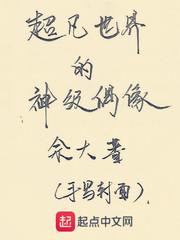 超凡世界
的
神级偶像
佘大善
(手写封面)
起 起点中文网